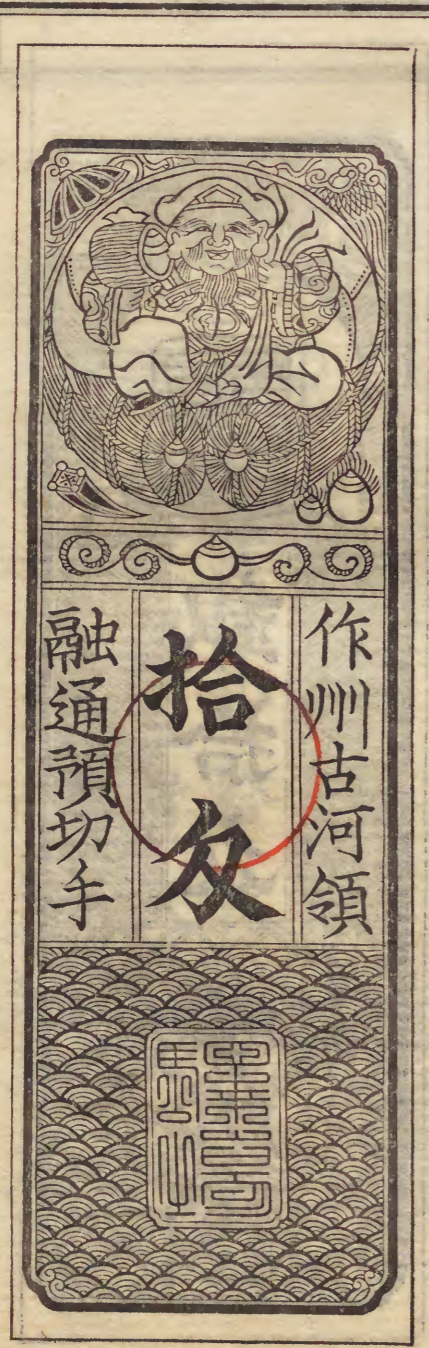 作州古河領
拾匁
融通預切手